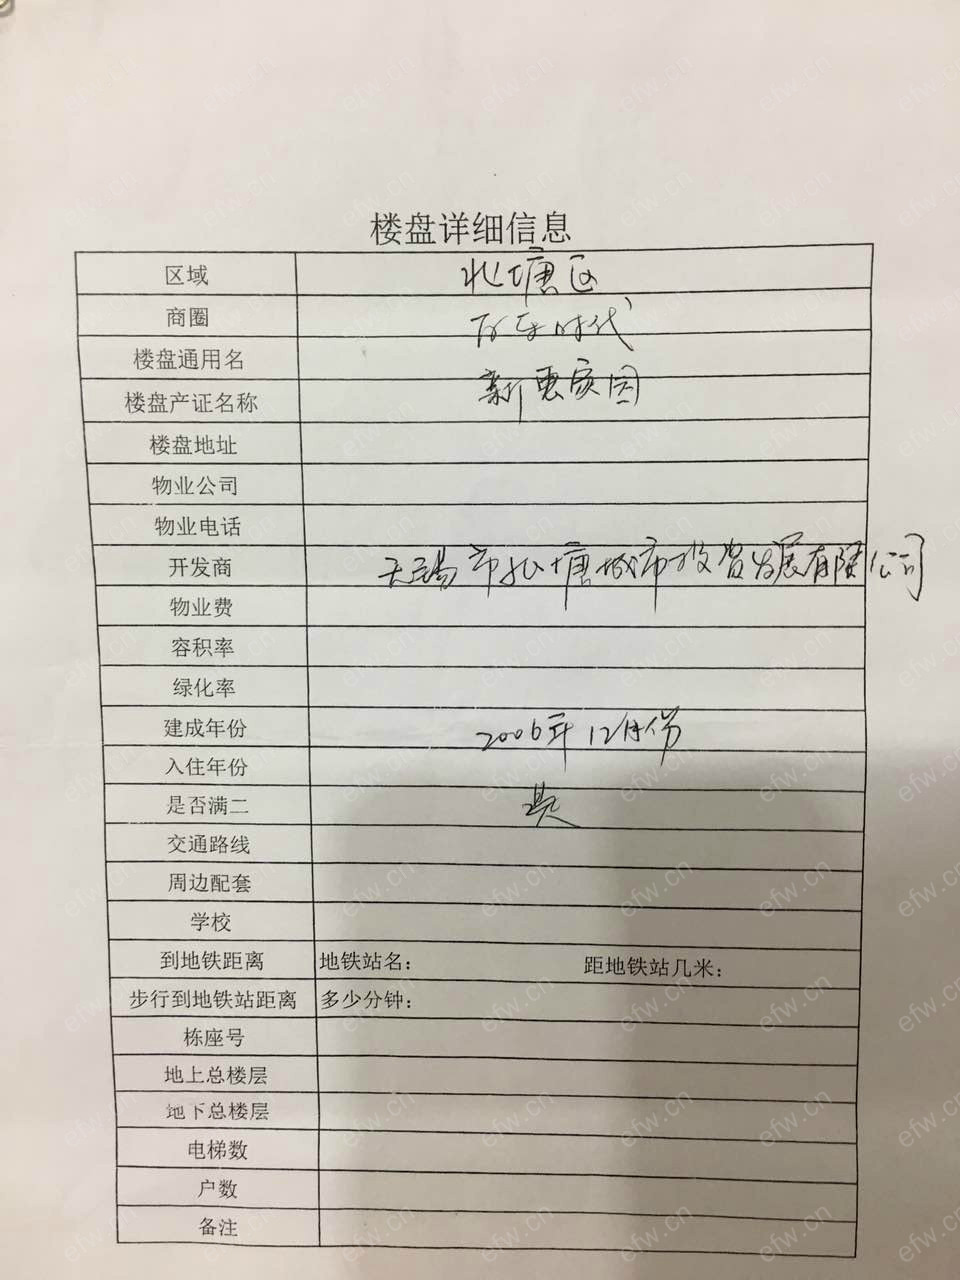 楼盘详细信息
区域 北塘区
商圈 时代
楼盘通用名
楼盘产证名称 新惠家园
楼盘地址
物业公司
物业电话
开发商 无锡市北塘城市投资发展有限公司
物业费
容积率
绿化率
建成年份 2006年12月份
入住年份
是否满二 是
交通路线
周边配套
学校
到地铁距离 地铁站名： 距地铁站几米：
步行到地铁站距离 多少分钟：
栋座号
地上总楼层
地下总楼层
电梯数
户数
备注
efw.cn